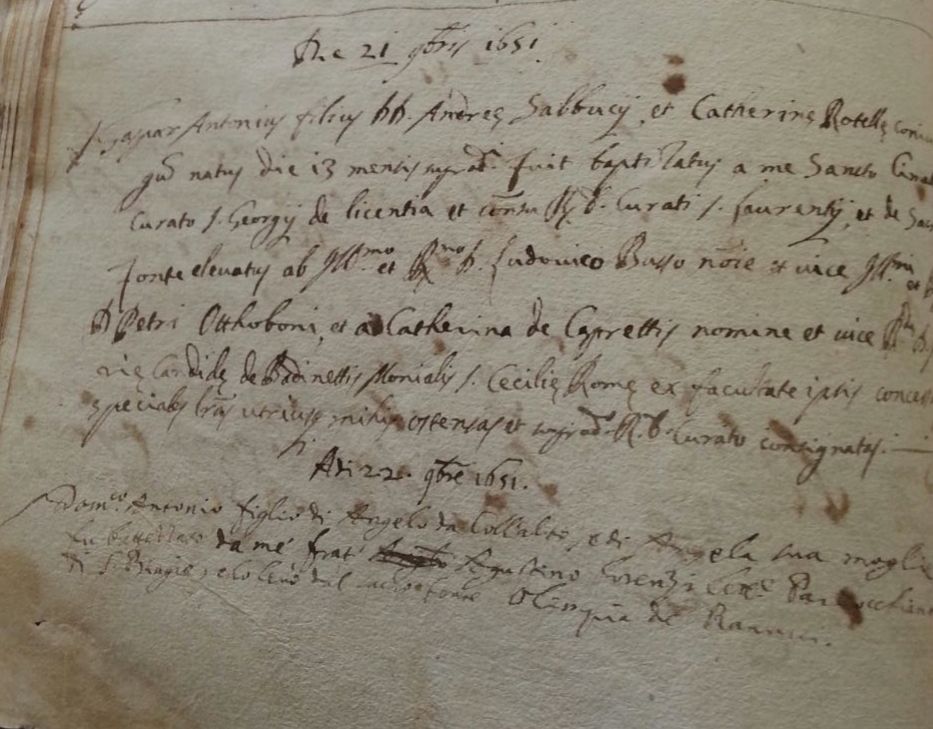 Die 21 9bris 1651.
Gaspar Antonius filius DD. Andreę Sabbucij, et Catherinę Rotellę
natus die 13 mensis suprad. fuit baptizatus a me Sancto
Curato S. Georgij de licentia et R. D. Curati S. Laurentij, et de
fonte elevatus ab Ill.mo et R.mo D. Ludovico Busso nõie et vice Ill.mi et
D Petri Otthoboni, et a Catherina de Caprettis nomine et vice
Candidę de Monialis S. Cecilię Romę ex facultate ipsis
speciales lr̃as mihi ostensas et suprad. R. D. Curato consignatas.
Adi 22. 9bre 1651.
Dom.co Antonio figlio di Angelo da Collalto, e di Angela sua
fu battezzato da me frat' Agostino Lorenzi
di S. Biagio, e lo levò dal sacro fonte Olimpia de